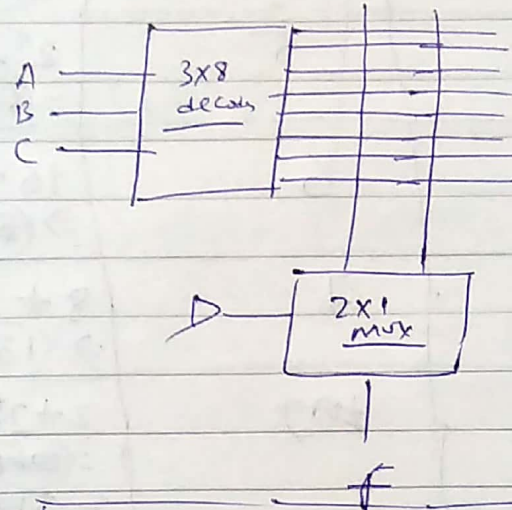 A
B
C
3x8
decods
D
2x1
mux
f